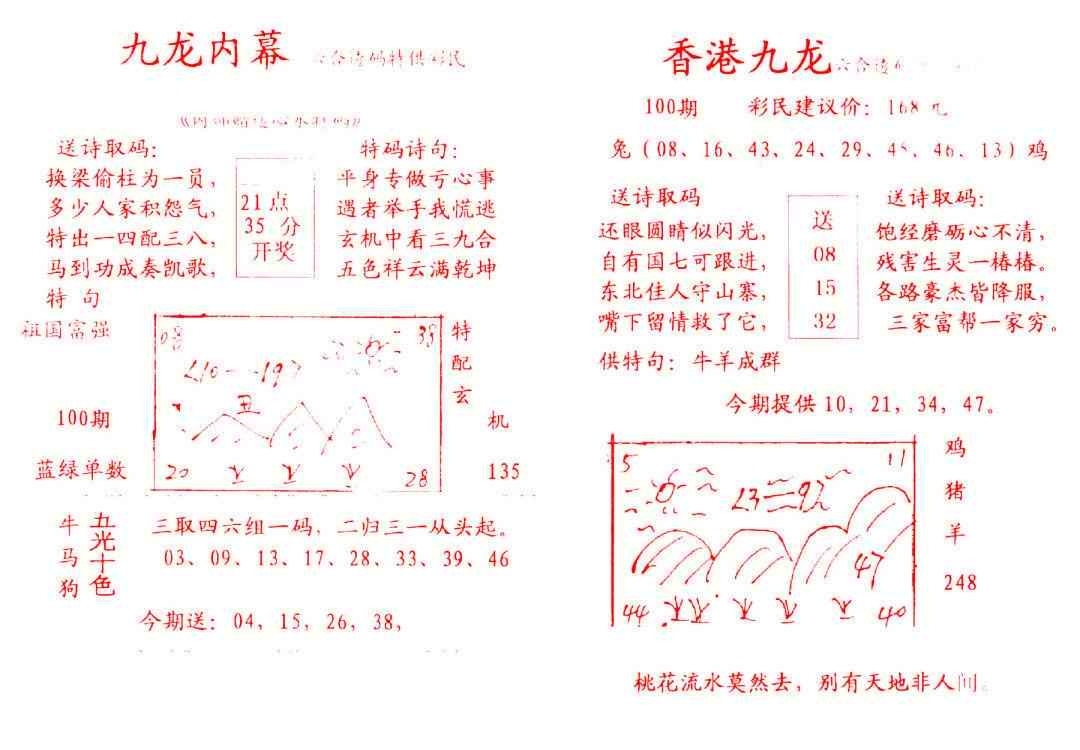 九龙内幕
六合透码特供彩民
送诗取码：
换梁偷柱为一员，
多少人家积怨气，
特出一四配三八，
马到功成奏凯歌，
21点
35 分
开奖
特码诗句：
平身专做亏心事
遇者举手我慌逃
玄机中看三九合
五色祥云满乾坤
特 句
祖国富强
100期
蓝绿单数
08
38
210一197
丑
20
28
特
配
玄
机
135
牛
马
狗
五光十色
三取四六组一码，二归三一从头起。
03、09、13、17、28、33、39、46
今期送：04，15，26，38，
香港九龙
六合透
100期 彩民建议价：168元
兔（08、16、43、24、29、45、46、13）鸡
送诗取码
还眼圆睛似闪光，
自有国七可跟进，
东北佳人守山寨，
嘴下留情救了它，
送
08
15
32
送诗取码：
饱经磨砺心不清，
残害生灵一椿椿。
各路豪杰皆降服，
三家富帮一家穷。
供特句：牛羊成群
今期提供10，21，34，47。
5
11
47
44
40
鸡
猪
羊
248
桃花流水莫然去，别有天地非人间。